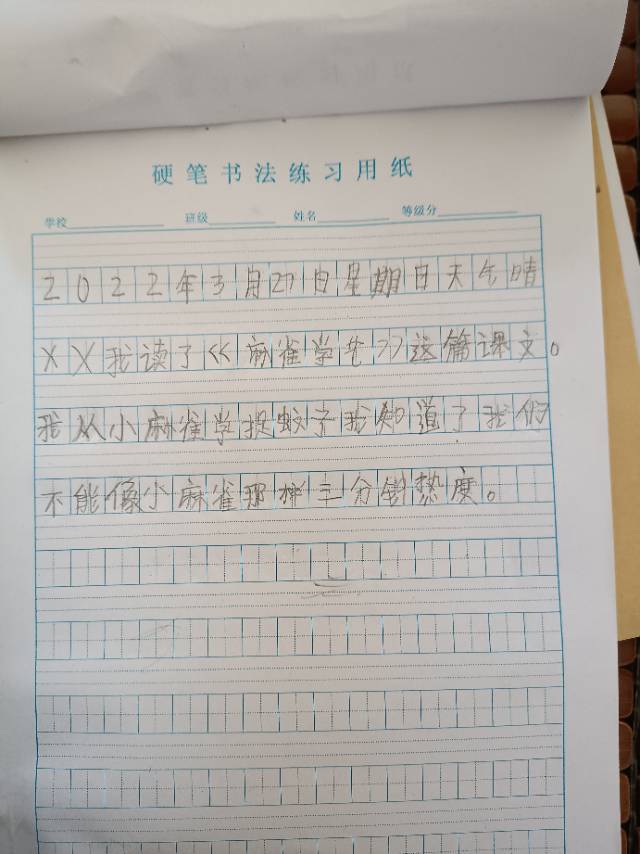 硬笔书法练习用纸
学校 班级 姓名 等级分
2022年3月27日星期日天气晴
XX我读了<<麻雀学艺>>这篇课文。
我从小麻雀学捉蚊子我知道了我们
不能像小麻雀那样三分钟热度。